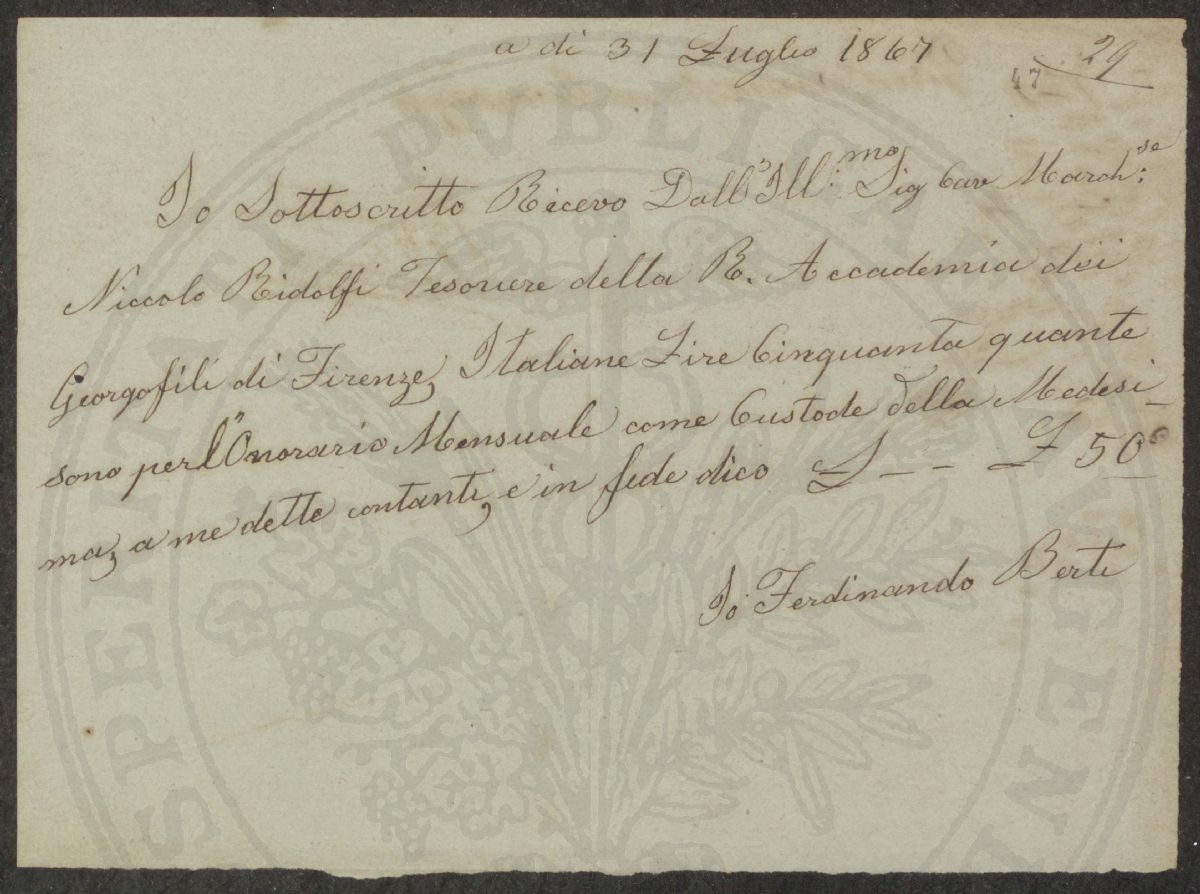 a di 31 Luglio 1867
29
47
Io Sottoscritto Ricevo Dall'Ill:mo Sig Cav March:se
Niccolo Ridolfi Tesoriere della R. Accademia dei
Georgofili di Firenze, Italiane Lire Cinquanta quante
sono per l'Onorario Mensuale come Custode della Medesi_
ma, a me dette contanti, e in fede dico L - - £ 50
Io Ferdinando Berti
PROSPERITATI PVBLICAE AVGENDAE